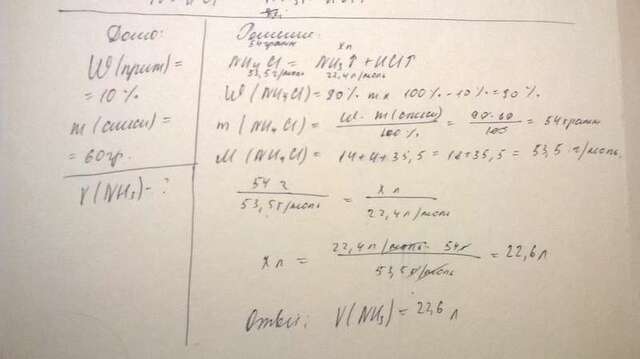 Дано:
W(прим)=
=10%
m(смеси)=
=60гр.
V(NH₃)-?
Решение:
54грамм x л
NH₄Cl = NH₃↑+HCl↑
53,5г/моль 22,4л/моль
W(NH₄Cl)=90% тк 100%-10%=90%
m(NH₄Cl)= W·m(смеси)/100% = 90·60/100 = 54грамм
M(NH₄Cl)=14+4+35,5=18+35,5=53,5 г/моль.
54 г/53,5г/моль = x л/22,4л/моль
x л = 22,4л/моль · 54г/53,5г/моль = 22,6л
Ответ: V(NH₃)=22,6 л